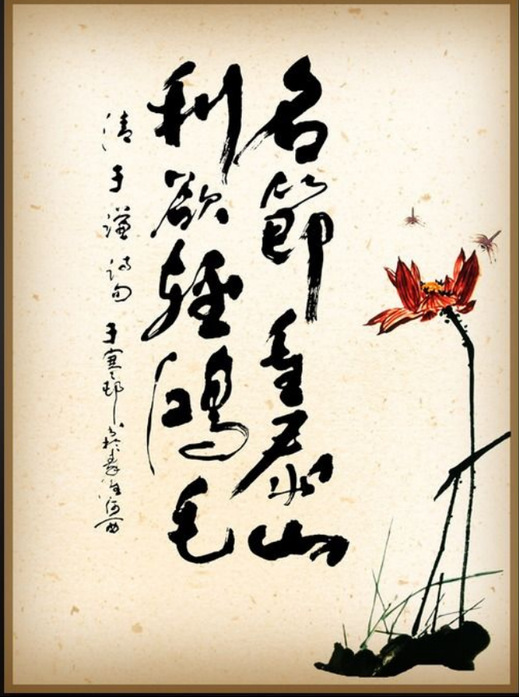 名節重泰山
利欲輕鴻毛
清于謙詩句 于寒邨